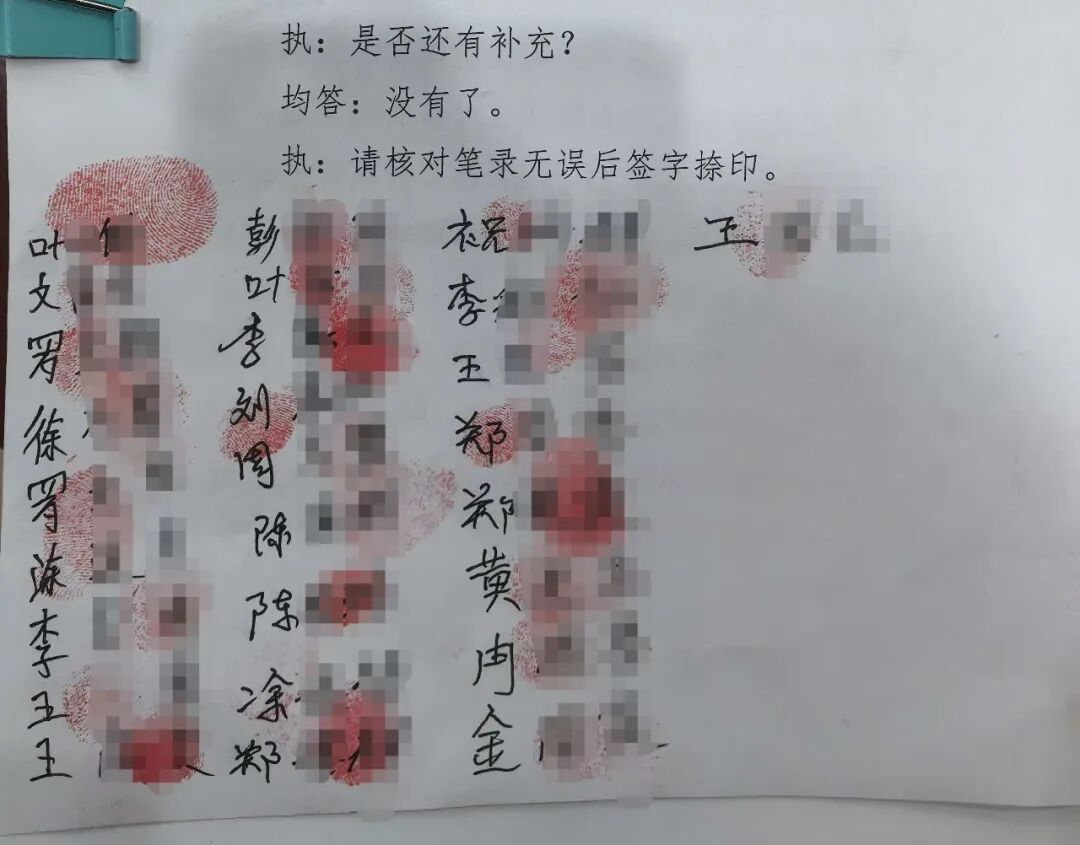 执：是否还有补充？
均答：没有了。
执：请核对笔录无误后签字捺印。
叶 彭 祝 王
文 叶 李
罗 李 王
徐 刘 郑
罗 周 郑
陈 陈 黄
李 陈 冉
王 涂 金
王 郑